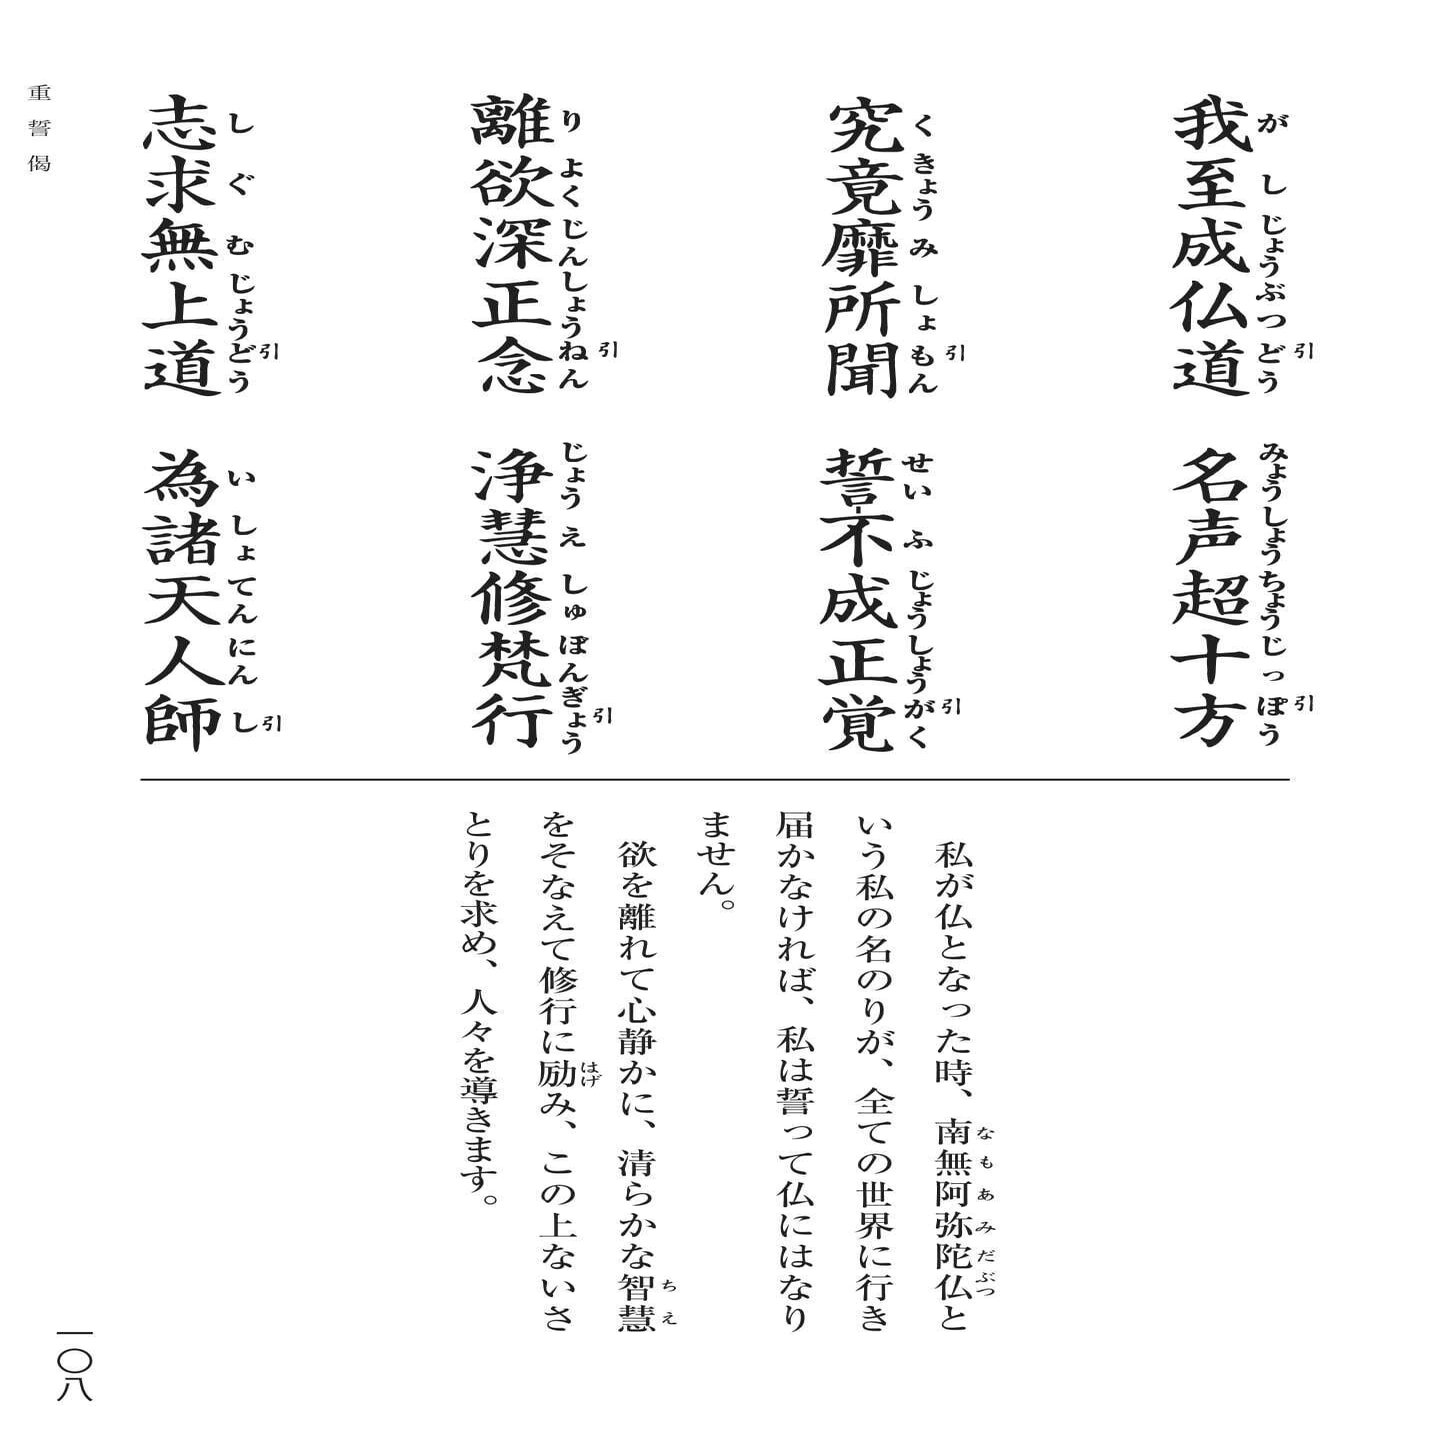 我至成仏道 名声超十方
がしじょうぶつどう引 みょうしょうちょうじっぽう引
究竟靡所聞 誓不成正覚
くきょうみしょもん引 せいふじょうしょうがく引
離欲深正念 浄慧修梵行
りよくじんしょうねん引 じょうえしゅぼんぎょう引
志求無上道 為諸天人師
しぐむじょうどう引 いしょてんにんし引
私が仏となった時、南無阿弥陀仏と
なもあみだぶつ
いう私の名のりが、全ての世界に行き
届かなければ、私は誓って仏にはなり
ません。
欲を離れて心静かに、清らかな智慧
ちえ
をそなえて修行に励み、この上ないさ
はげ
とりを求め、人々を導きます。
重誓偈
一〇八